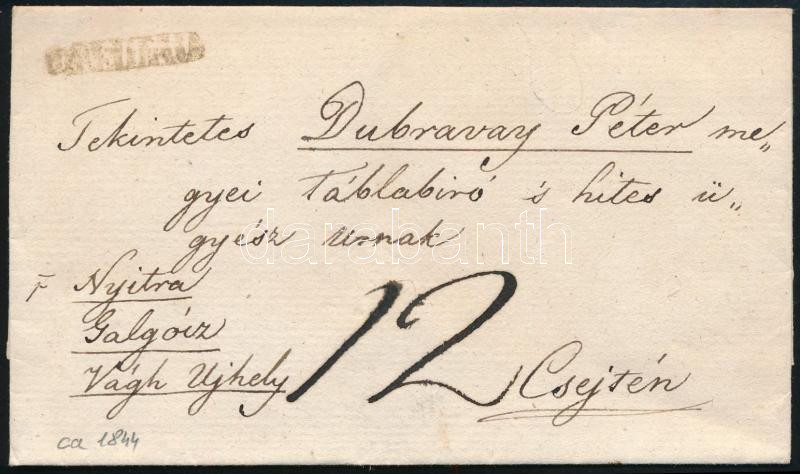 Tekintetes Dubravay Péter me„
gyei táblabiró 's hites ü„
gyész urnak
Nyitra
Galgócz
Vágh Ujhely
12
Csejtén
ca 1844
darabanth